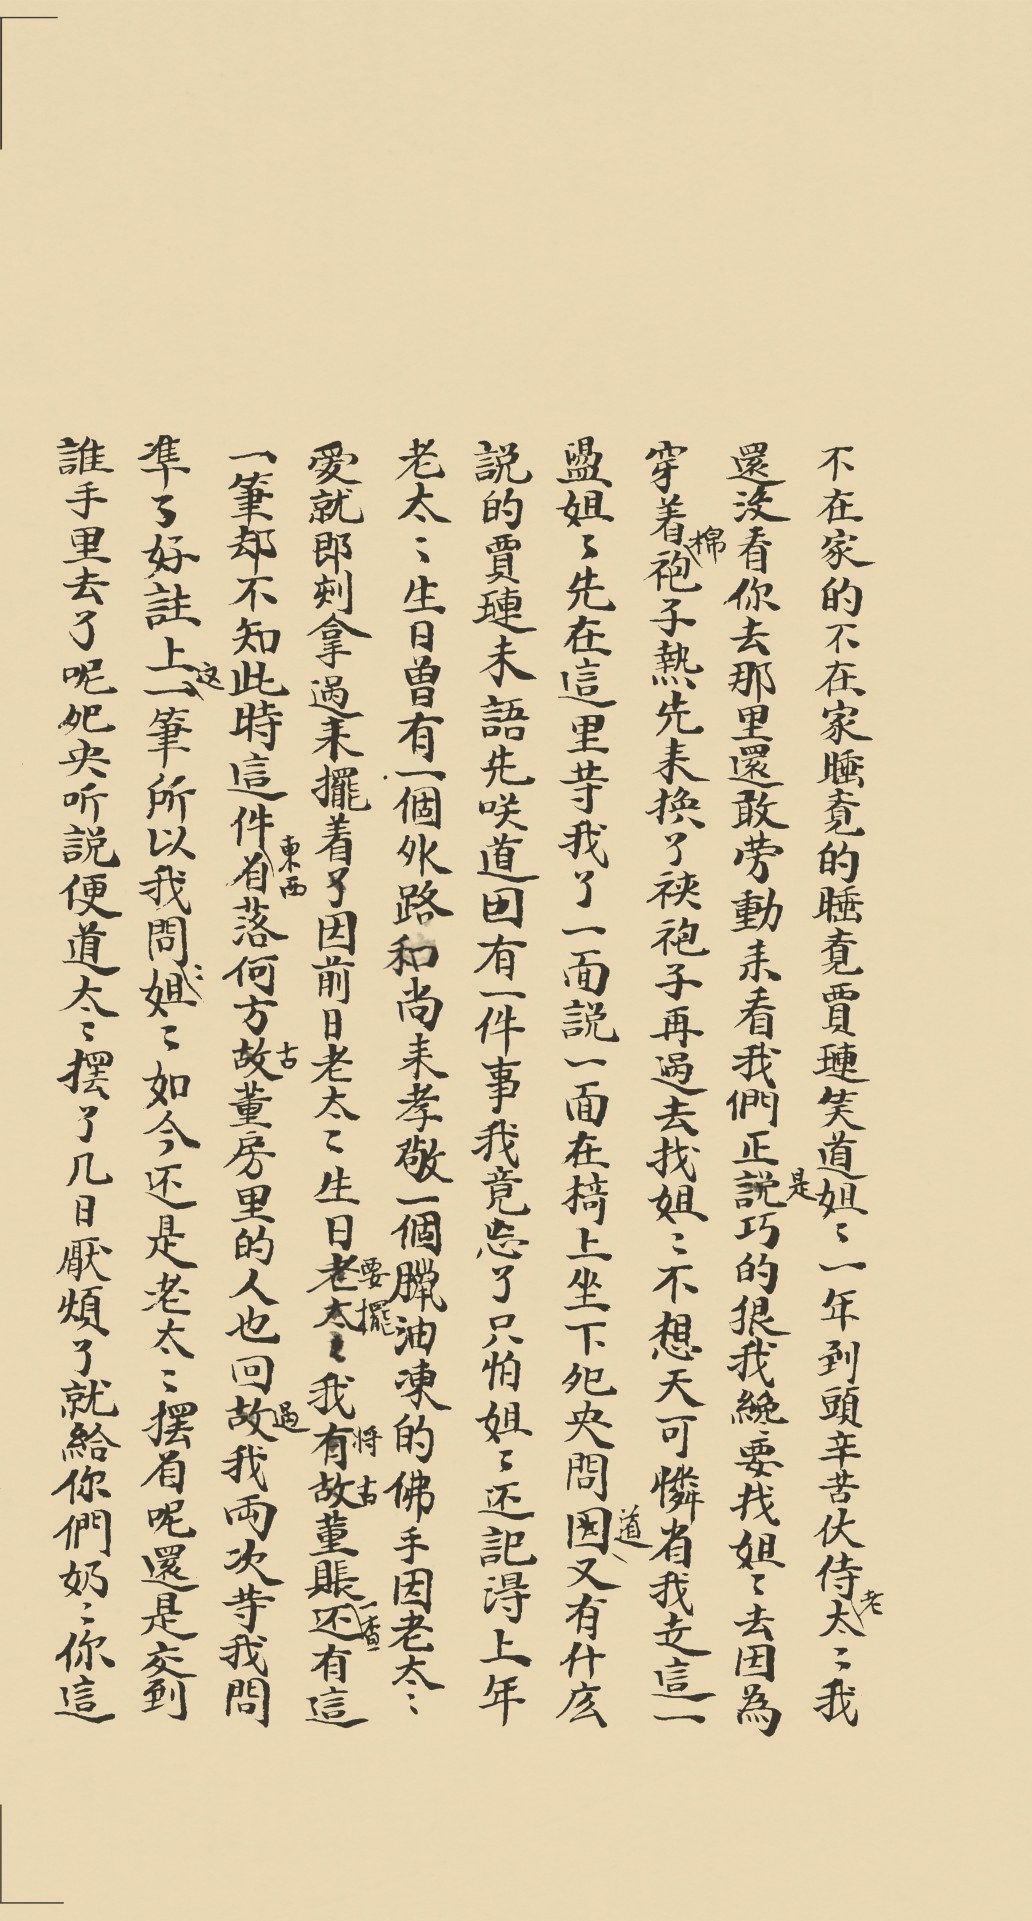 不在家的不在家睡覔的睡覔賈璉笑道姐〻一年到頭辛苦伏侍老太〻我
還没看你去那里還敢劳動来看我們正説是巧的狠我纔要找姐〻去因為
穿着棉袍子熱先来换了袂袍子再過去找姐〻不想天可憐省我走這一
盪姐〻先在這里䓁我了一面説一面在椅上坐下夗央問道因又有什庅
説的賈璉未語先咲道因有一件事我竟忘了只怕姐〻还記得上年
老太〻生日曽有一個外路和尚来孝敬一個臘油凍的佛手因老太〻
愛就即刻拿過来擺着了因前日老太〻生日老太〻要擺我有将故古董賬还一查有這
一筆却不知此時這件東西着落何方故古董房里的人也回過故我兩次䓁我問
準了好註上这一筆所以我問〻姐〻如今还是老太〻摆着呢還是交到
誰手里去了呢夗央听説便道太〻摆了几日厭煩了就給你們奶〻你這